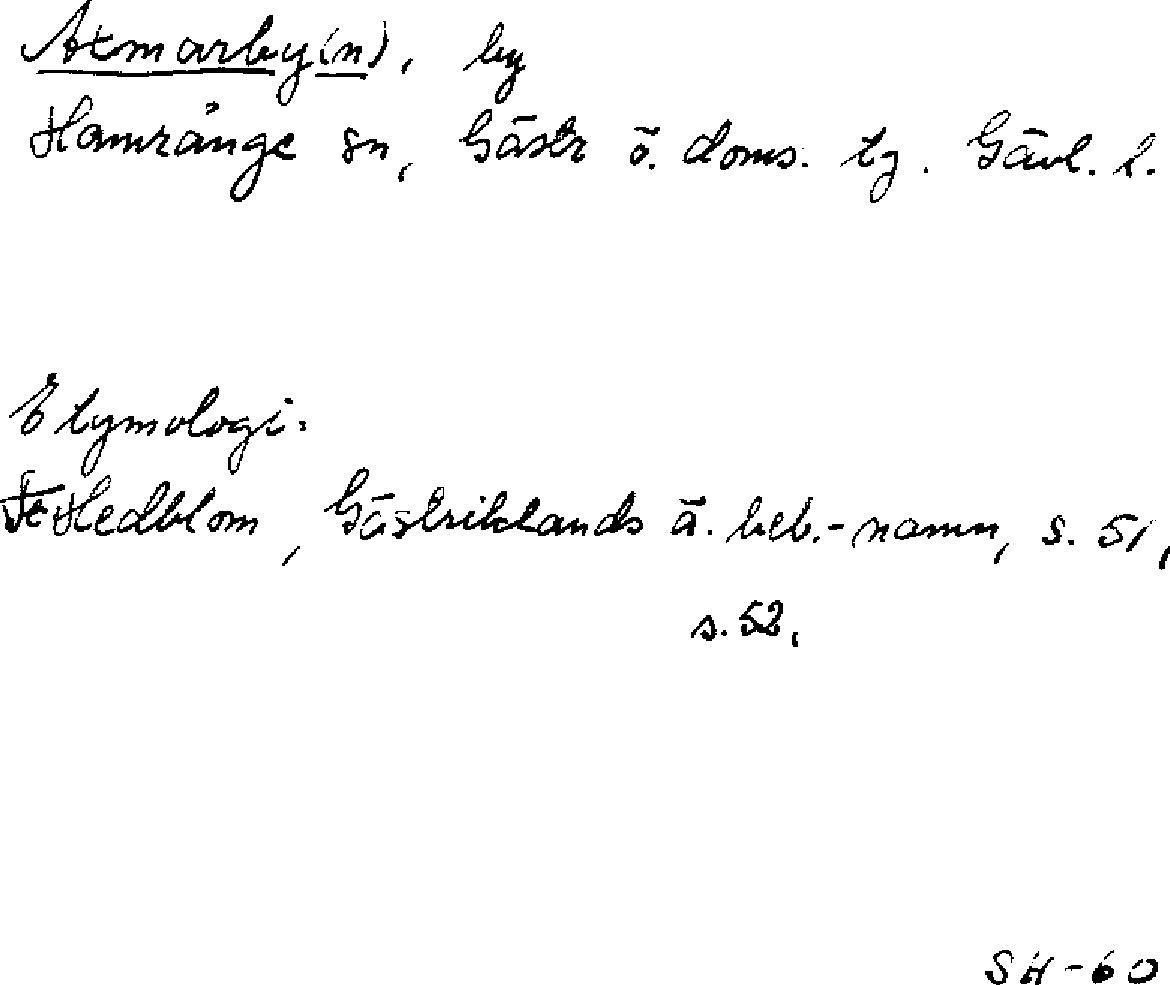 Atmarby(n), by
Hamrånge sn, Gästr ö. doms. tg. Gävl. l.
Etymologi:
Se Hedblom, Gästriklands ä. beb.-namn, s. 51,
s. 52,
SH-60